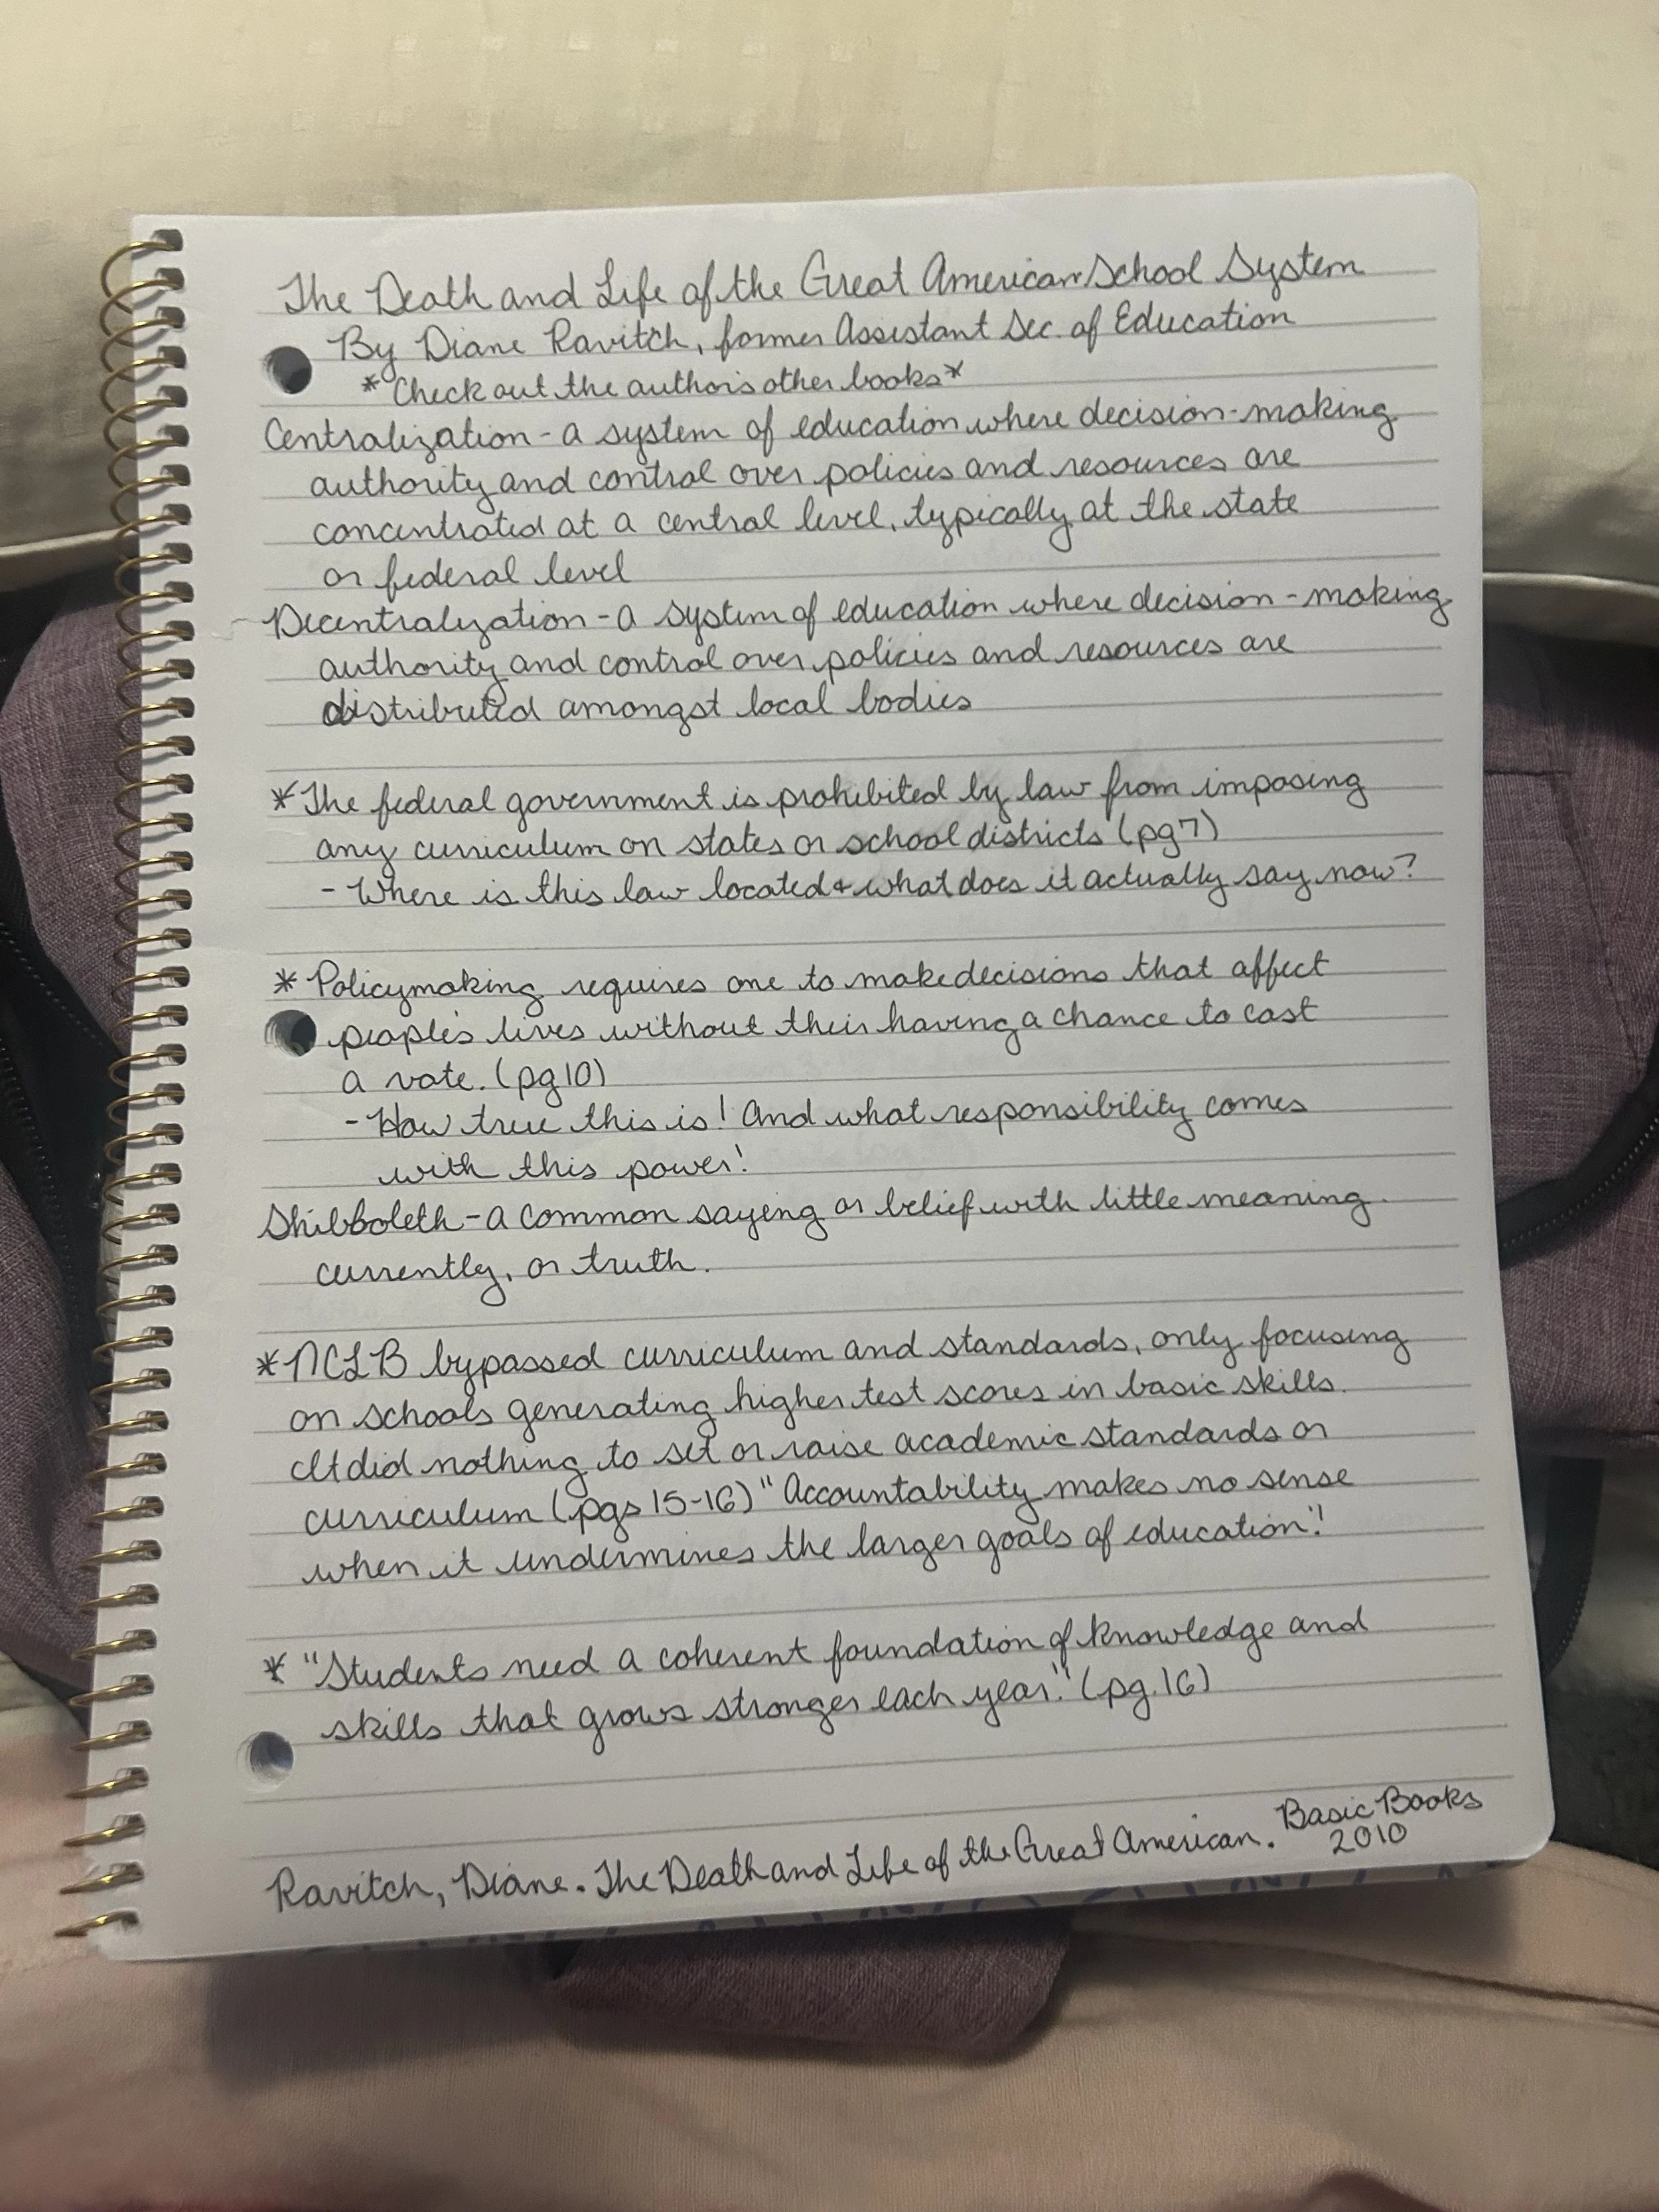 The Death and Life of the Great American School System
By Diane Ravitch, former Assistant Sec. of Education
*Check out the author's other books*
Centralization - a system of education where decision-making
authority and control over policies and resources are
concentrated at a central level, typically at the state
or federal level
Decentralization - a system of education where decision-making
authority and control over policies and resources are
distributed amongst local bodies
*The federal government is prohibited by law from imposing
any curriculum on states or school districts (pg 7)
- Where is this law located & what does it actually say now?
*Policymaking requires one to make decisions that affect
people's lives without their having a chance to cast
a vote. (pg 10)
- How true this is! And what responsibility comes
with this power!
Shibboleth - a common saying or belief with little meaning
currently, or truth.
*NCLB bypassed curriculum and standards, only focusing
on schools generating higher test scores in basic skills.
It did nothing to set or raise academic standards or
curriculum (pgs 15-16) "Accountability makes no sense
when it undermines the larger goals of education."
* "Students need a coherent foundation of knowledge and
skills that grows stronger each year." (pg. 16)
Ravitch, Diane. The Death and Life of the Great American. Basic Books
2010